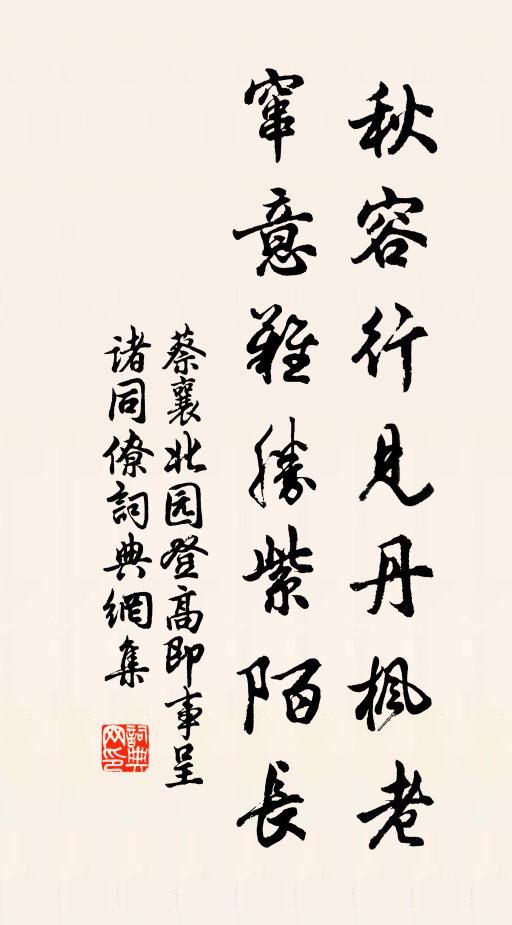 秋容行見丹楓老
窜意難勝紫陌長
蔡襄北园登高即事呈
诸同僚詞典網集
詞典网印